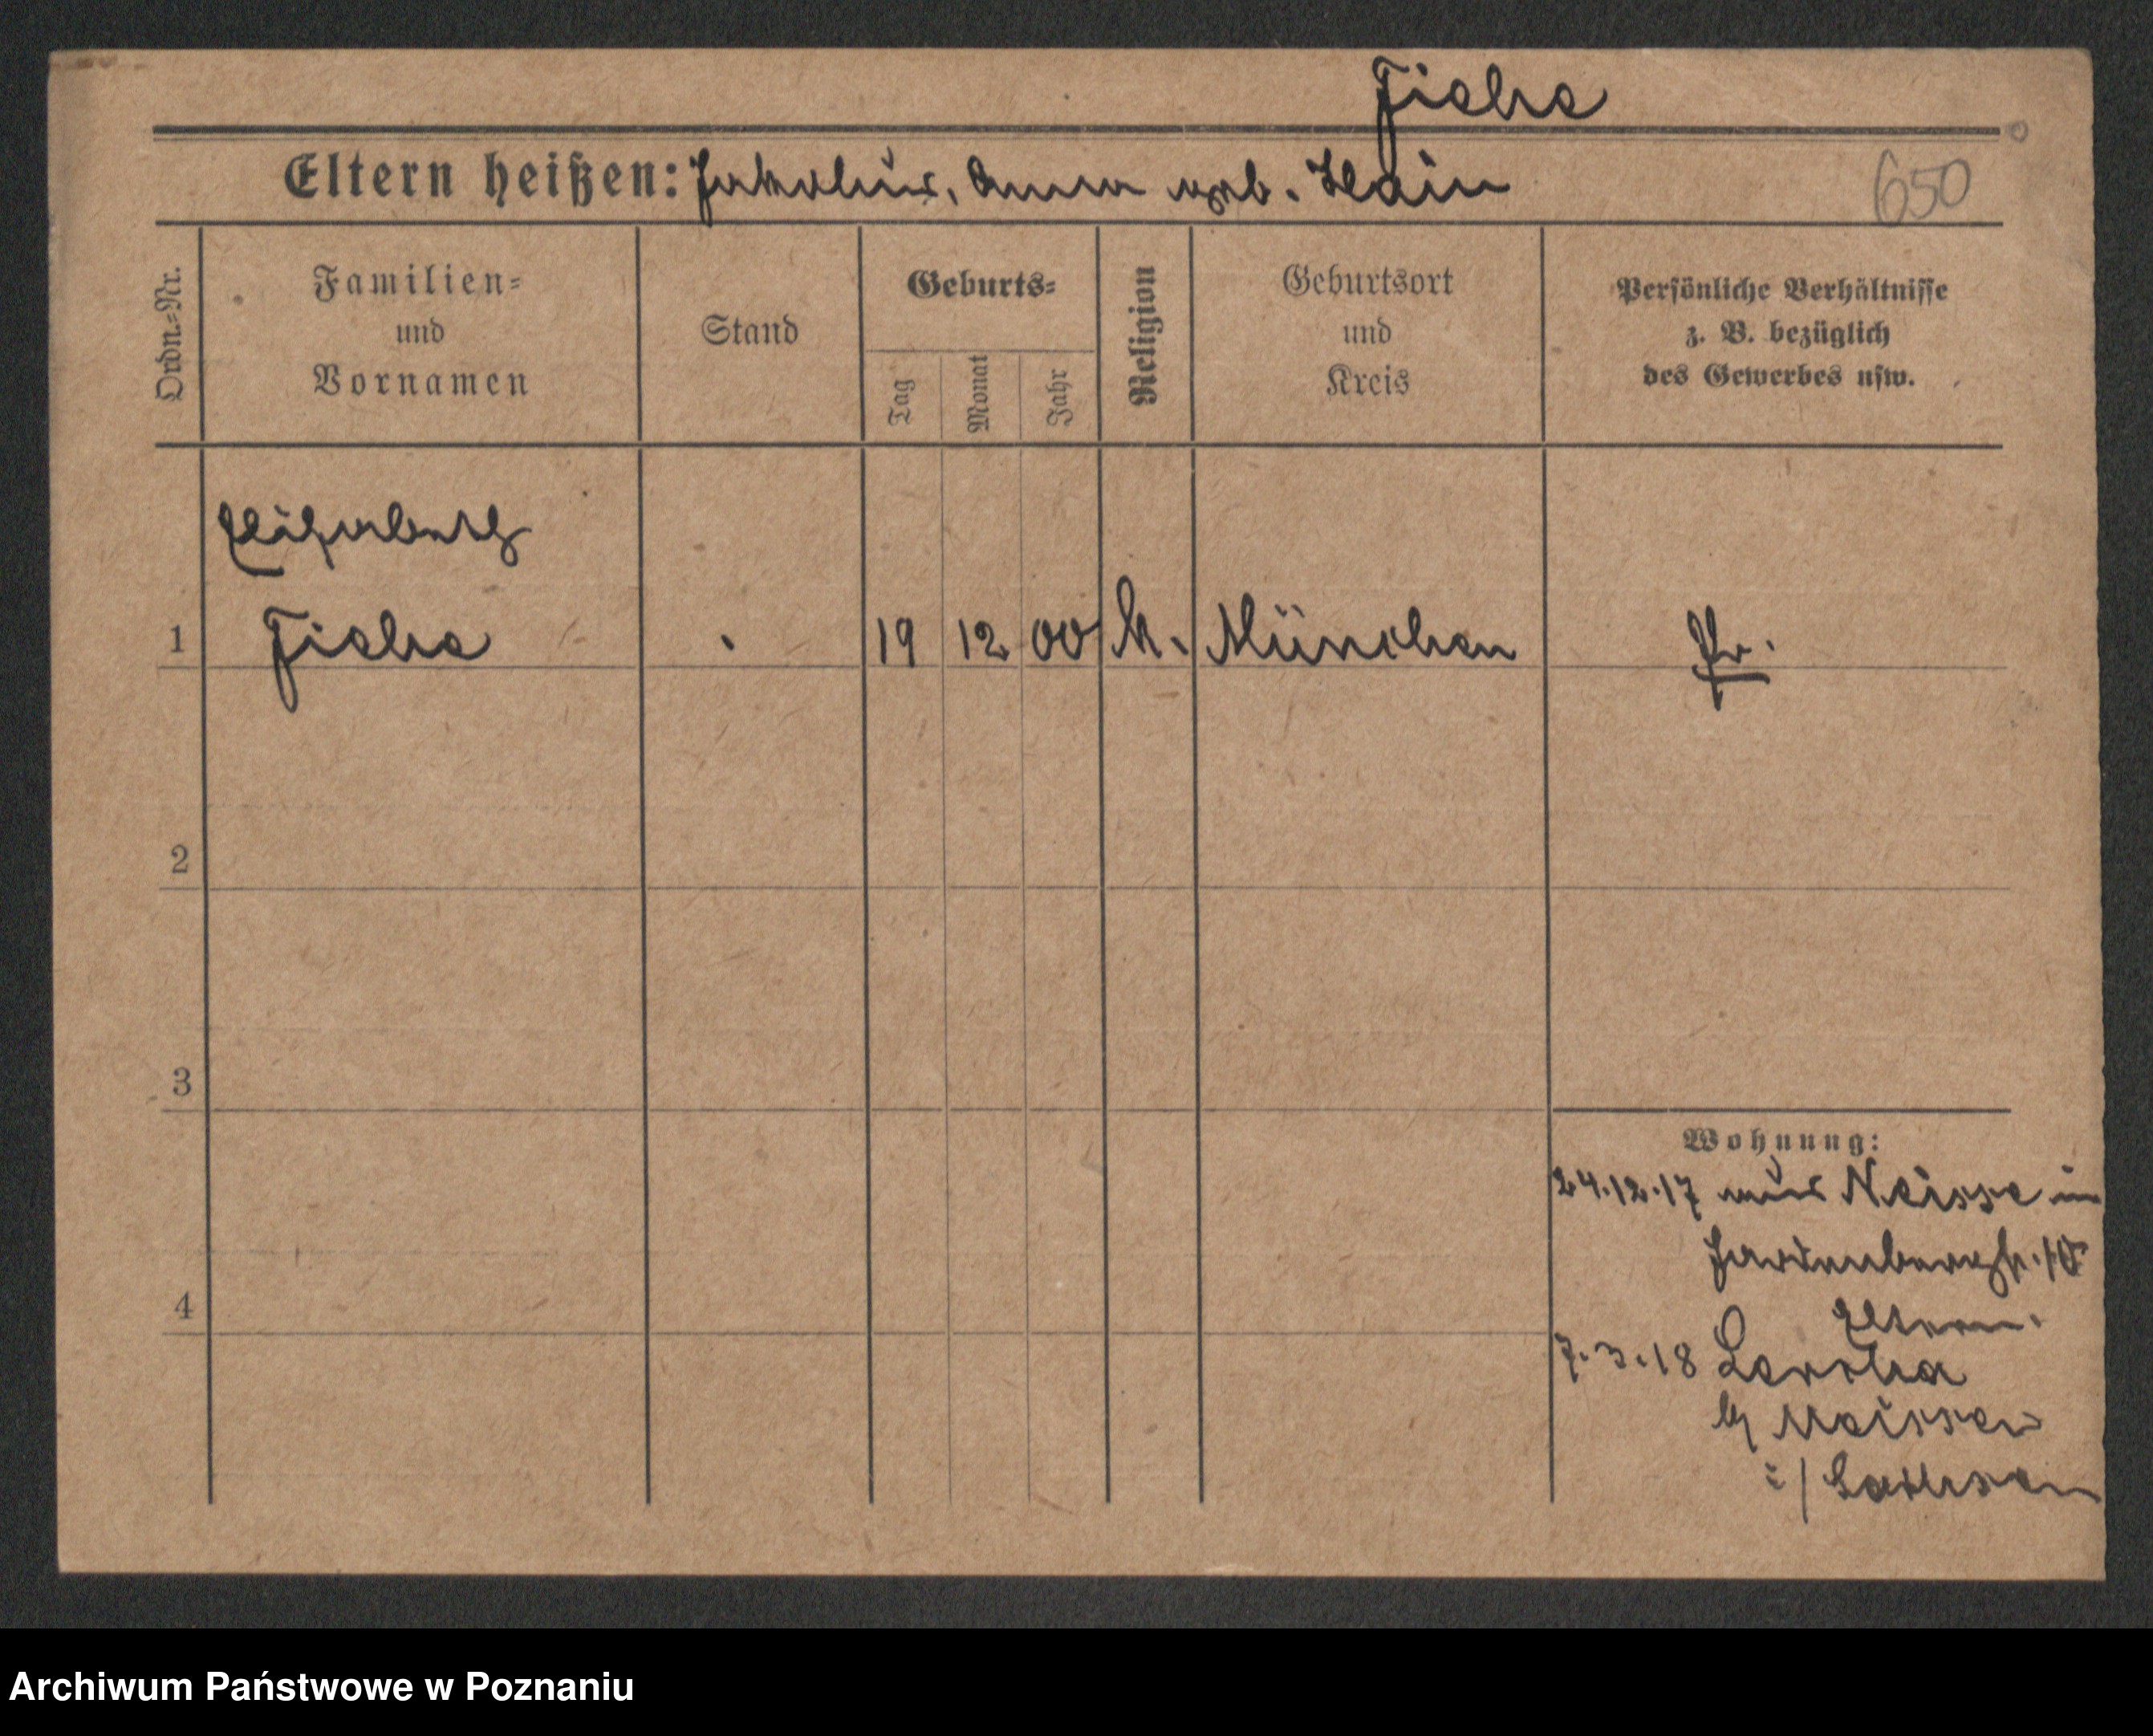 Fiche
Eltern heißen: Jakobus, Anna geb. Hain
650
Ordn.-Nr.
Familien-
und
Vornamen
Stand
Geburts-
Tag
Monat
Jahr
Religion
Geburtsort
und
Kreis
Persönliche Verhältnisse
z. B. bezüglich
des Gewerbes usw.
Elisabeth
1 Fiche 19 12 00 k. München Pr.
2
3
Wohnung:
24.12.17 aus Neisse in
4 Eltern.
7.3.18 Lercha
b/ Meissen
i/ Sachsen
Archiwum Państwowe w Poznaniu